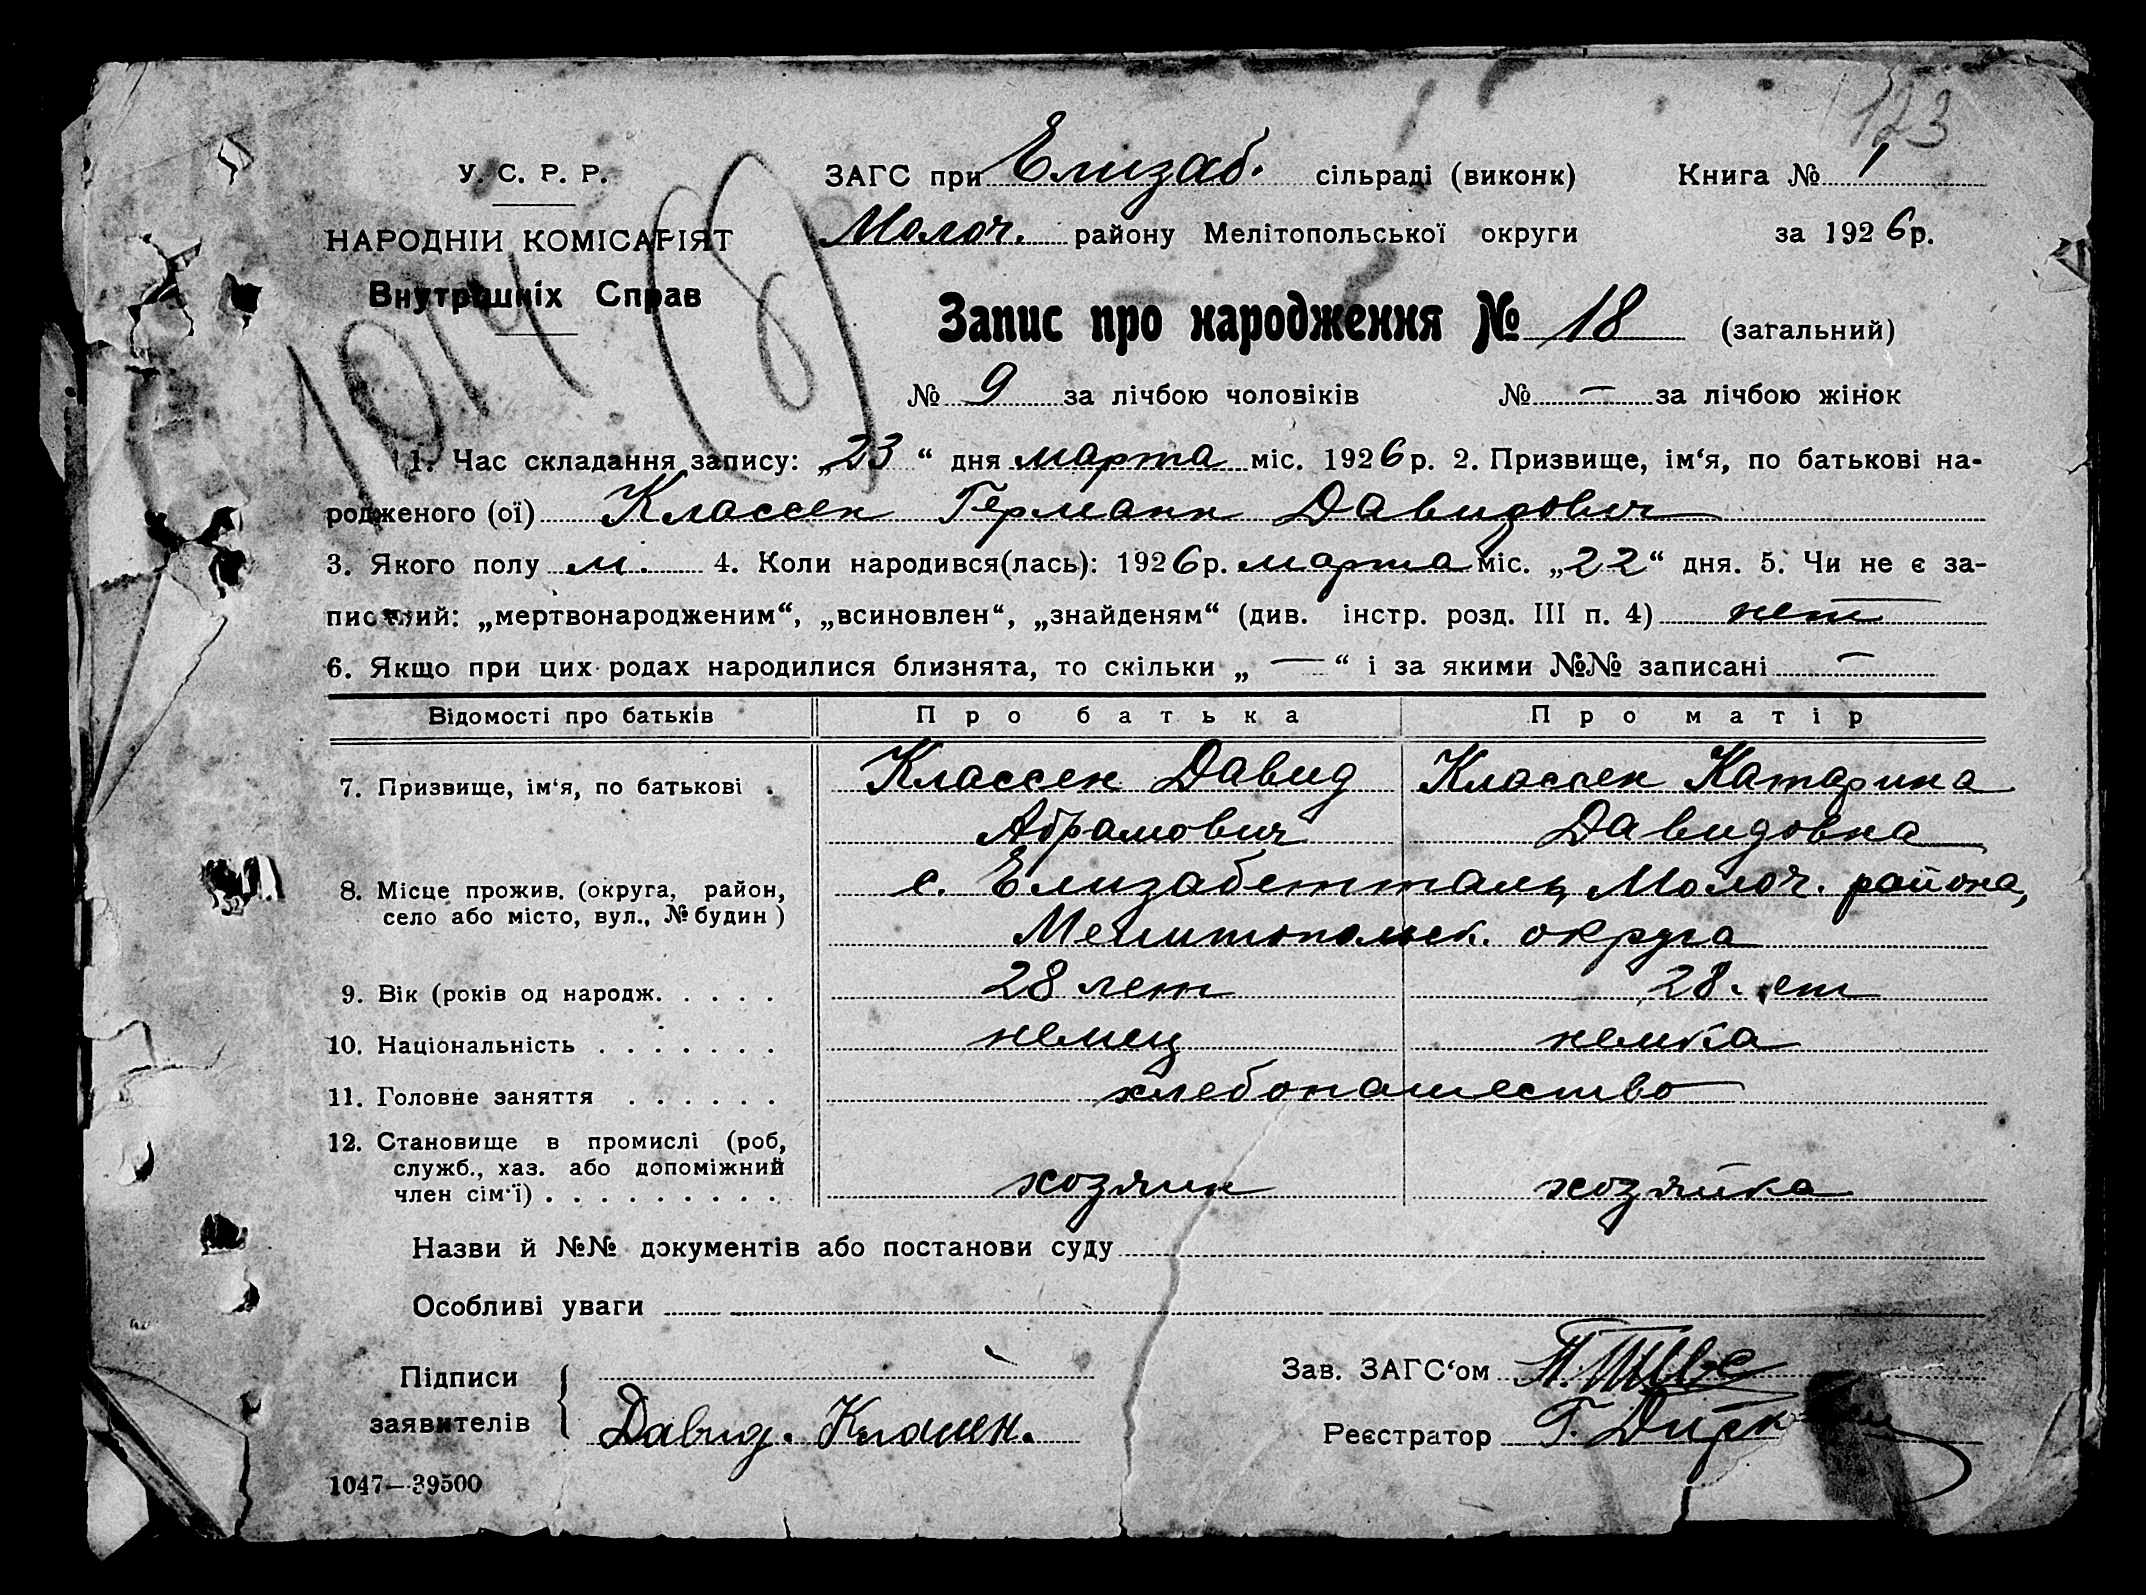 123
У. С. Р. Р.
НАРОДНІЙ КОМІСАРІЯТ
Внутрішніх Справ
1014 (8)
ЗАГС при Елизаб. сільраді (виконк) Книга № 1
Молоч. району Мелітопольської округи за 1926р.
Запис про народження № 18 (загальний)
№ 9 за лічбою чоловіків № — за лічбою жінок
1. Час складання запису: „23“ дня марта міс. 1926р. 2. Призвище, ім‘я, по батькові на-
родженого (ої) Классен Герман Давидович
3. Якого полу м. 4. Коли народився(лась): 1926р. марта міс. „22“ дня. 5. Чи не є за-
писаний: „мертвонародженим“, „всиновлен“, „знайденям“ (див. інстр. розд. III п. 4) нет
6. Якщо при цих родах народилися близнята, то скільки „ — “ і за якими №№ записані —
Відомості про батьків Про батька Про матір
7. Призвище, ім‘я, по батькові . Классен Давид Классен Катарина
Абрамович Давидовна
8. Місце прожив. (округа, район, с. Елизабетталь, Молоч. района,
село або місто, вул., № будин) Мелитопольск. округа
9. Вік (років од народж. . . . . 28 лет 28 лет
10. Національність . . . . . . . немец немка
11. Головне заняття . . . . . . хлебопашество
12. Становище в промислі (роб,
служб., хаз. або допоміжний
член сім‘ї) . . . . . . . . . . хозяин хозяйка
Назви й №№ документів або постанови суду
Особливі уваги
Підписи Зав. ЗАГС‘ом
заявителів Давид. Классен. Реєстратор Г. Дирк
1047—39500